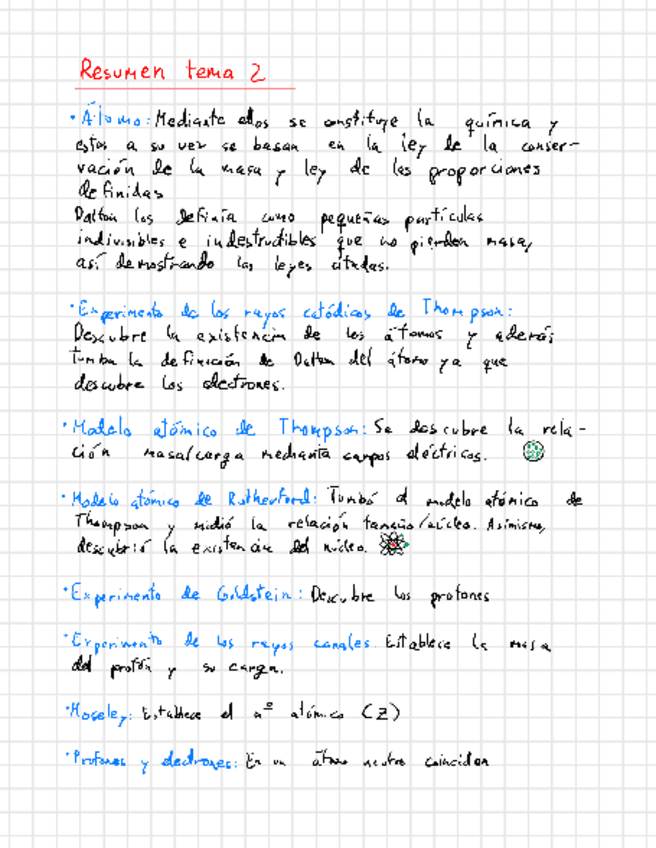 Resumen tema 2
· Átomo: Mediante ellos se constituye la química y
estos a su vez se basan en la ley de la conser-
vación de la masa y ley de las proporciones
definidas
Dalton los definía como pequeñas partículas
indivisibles e indestructibles que no pierden masa,
así demostrando las leyes citadas.
· Experimento de los rayos catódicos de Thompson:
Descubre la existencia de los átomos y además
tumba la definición de Dalton del átomo ya que
descubre los electrones.
· Modelo atómico de Thompson: Se descubre la rela-
ción masa/carga mediante campos eléctricos.
· Modelo atómico de Rutherford: Tumbó el modelo atómico de
Thompson y midió la relación tamaño/núcleo. Asimismo,
descubrió la existencia del núcleo.
· Experimento de Goldstein: Descubre los protones
· Experimento de los rayos canales. Establece la masa
del protón y su carga.
· Moseley: Establece el nº atómico (Z)
· Protones y electrones: En un átomo neutro coinciden